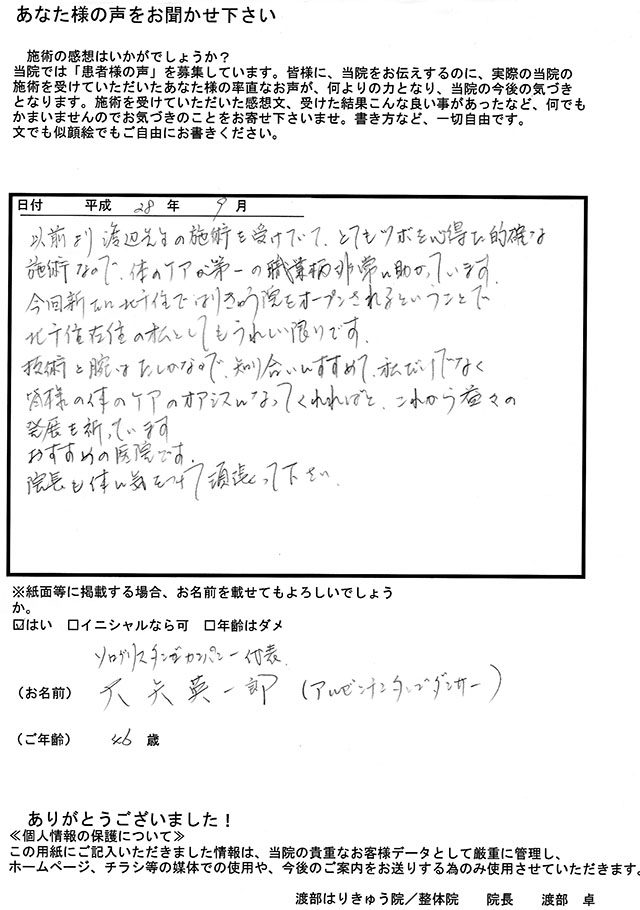 あなた様の声をお聞かせ下さい
施術の感想はいかがでしょうか？
当院では「患者様の声」を募集しています。皆様に、当院をお伝えするのに、実際の当院の
施術を受けていただいたあなた様の率直なお声が、何よりの力となり、当院の今後の気づき
となります。施術を受けていただいた感想文、受けた結果こんな良い事があったなど、何でも
かまいませんのでお気づきのことをお寄せ下さいませ。書き方など、一切自由です。
文でも似顔絵でもご自由にお書きください。
日付 平成 28 年 9 月
以前より渡辺先生の施術を受けていて、とてもツボを心得た的確な
施術なので、体のケアが第一の職業柄非常に助かっています。
今回新たに北千住ではりきゅう院をオープンされるということで
北千住在住の私としてもうれしい限りです。
技術と腕はたしかなので、知り合いにすすめて、私だけでなく
皆様の体のケアのオアシスになってくれればと、これから益々の
発展を祈っています
おすすめの医院です。
院長も体に気をつけて頑張って下さい。
※紙面等に掲載する場合、お名前を載せてもよろしいでしょう
か。
☑はい □イニシャルなら可 □年齢はダメ
タンゴカンパニー代表
（お名前） 大矢英一郎 （アルゼンチンタンゴダンサー）
（ご年齢） 46 歳
ありがとうございました！
≪個人情報の保護について≫
この用紙にご記入いただきました情報は、当院の貴重なお客様データとして厳重に管理し、
ホームページ、チラシ等の媒体での使用や、今後のご案内をお送りする為のみ使用させていただきます。
渡部はりきゅう院／整体院 院長 渡部 卓